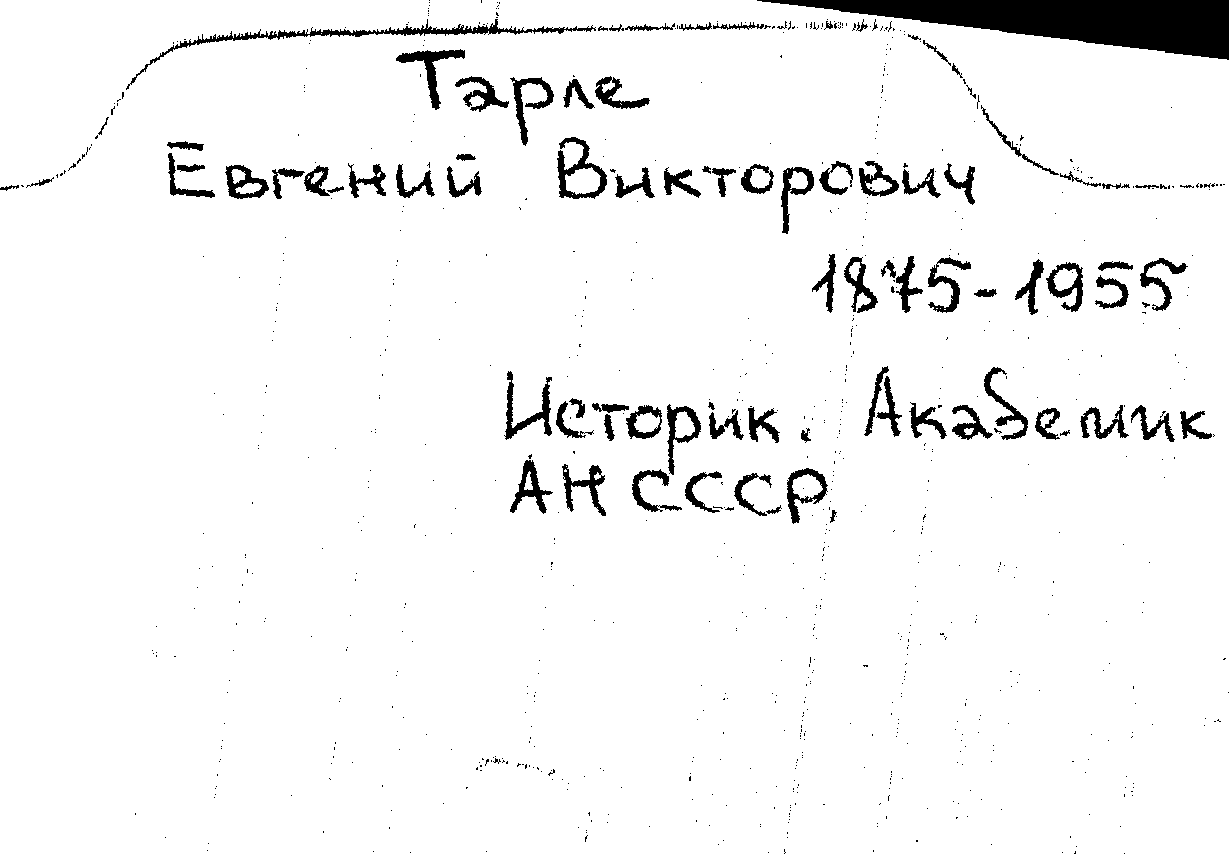 Тарле
Евгений Викторович
1875-1955
Историк. Академик
АН СССР.